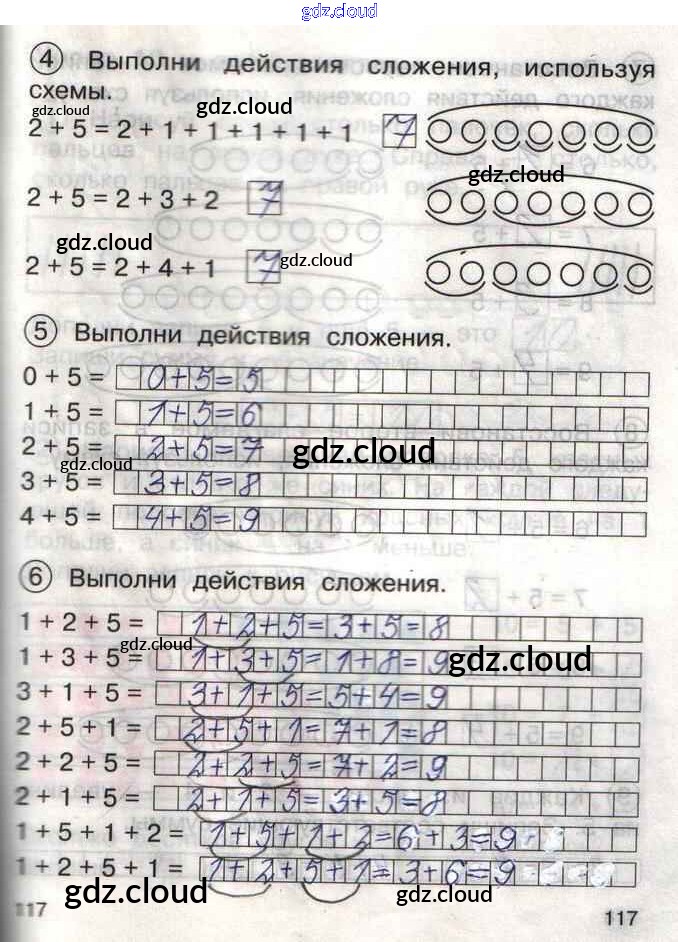 gdz.cloud
4 Выполни действия сложения, используя
схемы.
gdz.cloud
gdz.cloud
2 + 5 = 2 + 1 + 1 + 1 + 1 + 1 7
gdz.cloud
2 + 5 = 2 + 3 + 2 7
gdz.cloud
2 + 5 = 2 + 4 + 1 7
gdz.cloud
5 Выполни действия сложения.
0 + 5 = 0+5=5
1 + 5 = 1+5=6
2 + 5 = 2+5=7
gdz.cloud
gdz.cloud
3 + 5 = 3+5=8
4 + 5 = 4+5=9
6 Выполни действия сложения.
1 + 2 + 5 = 1+2+5=3+5=8
gdz.cloud
1 + 3 + 5 = 1+3+5=1+8=9
gdz.cloud
3 + 1 + 5 = 3+1+5=5+4=9
2 + 5 + 1 = 2+5+1=7+1=8
2 + 2 + 5 = 2+2+5=7+2=9
2 + 1 + 5 = 2+1+5=3+5=8
1 + 5 + 1 + 2 = 1+5+1+2=6+3=9
1 + 2 + 5 + 1 = 1+2+5+1=3+6=9
gdz.cloud
gdz.cloud
117
117